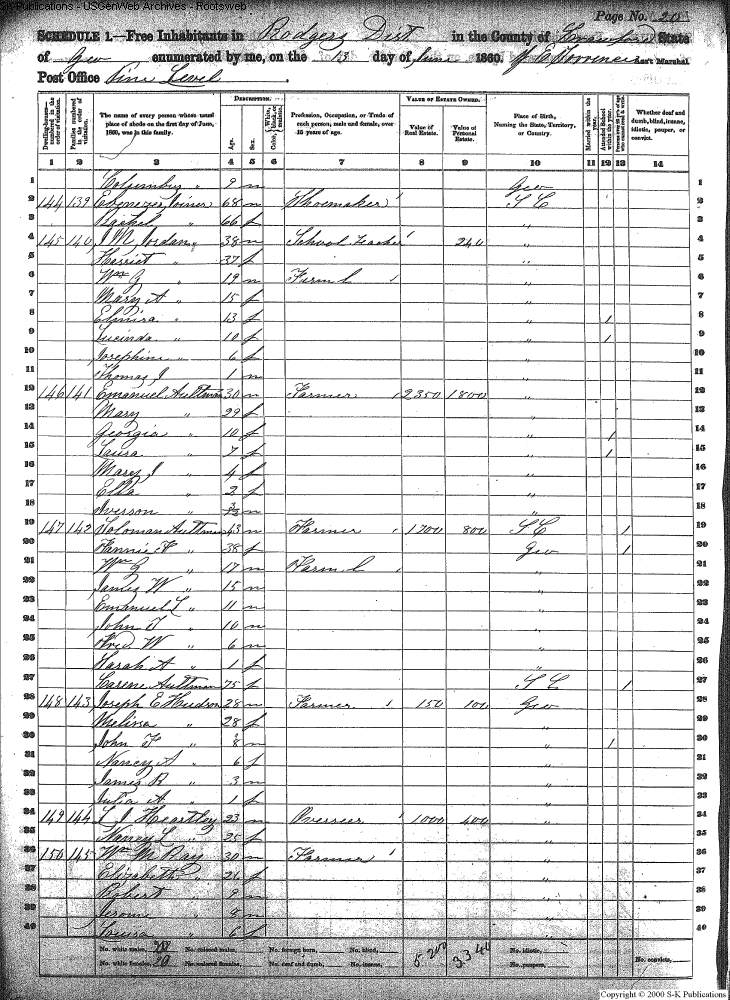 S-K Publications - USGenWeb Archives - Rootsweb
Page No. 20
SCHEDULE 1.—Free Inhabitants in Rodgers Dist in the County of Crawford State
of Geo enumerated by me, on the 13 day of June 1860. Ass't Marshal
Post Office Pine Level.
Dwelling-houses—numbered in the order of visitation.
Families numbered in the order of visitation.
The name of every person whose usual place of abode on the first day of June, 1860, was in this family.
DESCRIPTION.
Age.
Sex.
Color, { White, black, or mulatto.
Profession, Occupation, or Trade of each person, male and female, over 15 years of age.
VALUE OF ESTATE OWNED.
Value of Real Estate.
Value of Personal Estate.
Place of Birth, Naming the State, Territory, or Country.
Married within the year.
Attended School within the year.
Persons over 20 y'rs of age who cannot read & write.
Whether deaf and dumb, blind, insane, idiotic, pauper, or convict.
1 2 3 4 5 6 7 8 9 10 11 12 13 14
1 Columbus " 9 m Geo 1
2 144 139 Ebenezer Joiner 68 m Shoemaker S C 2
3 Rachel " 66 f " 3
4 145 140 J M Jordan " 38 m School Teacher 240 " 4
5 Harriet " 37 f " 5
6 Wm G " 19 m Farm L " 6
7 Mary A " 15 f " 7
8 Elmira " 13 f " 1 8
9 Lucinda " 10 f " 1 9
10 Josephine " 6 f " 10
11 Thomas J 1 m " 11
12 146 141 Emanuel Aultman 30 m Farmer 2350 1800 " 12
13 Mary " 29 f " 13
14 Georgia " 10 f " 1 14
15 Laura " 7 f " 1 15
16 Mary J " 4 f " 16
17 Ella " 2 f " 17
18 Iverson " m " 18
19 147 142 Soloman Aultman 43 m Farmer 1700 800 S C 1 19
20 Fannie F " 38 f Geo 1 20
21 Wm G " 17 m Farm L " 21
22 James W " 15 m " 22
23 Emanuel L " 11 m " 23
24 John T " 10 m " 24
25 W " 6 m " 25
26 Sarah A " 1 f " 26
27 Aultman 75 f S C 1 27
28 148 143 Joseph E Hudson 28 m Farmer 150 100 Geo 28
29 Melissa " 28 f " 29
30 John F " 8 m " 1 30
31 Nancy A " 6 f " 31
32 James R " 3 m " 32
33 Julia A " 1 f " 33
34 149 144 L J Heartley 23 m Overseer 1000 400 " 34
35 Nancy L " 25 f " 35
36 150 145 Wm M Ray 30 m Farmer " 36
37 Elizabeth " 26 f " 37
38 Robert " 9 m " 38
39 Jerome " 8 m " 39
40 Louisa " 6 f " 40
No. white males, 20 No. colored males, No. foreign born, No. blind, 5200 3340 No. idiotic, No. convicts,
No. white females, 20 No. colored females, No. deaf and dumb, No. insane, No. paupers,
Copyright © 2000 S-K Publications